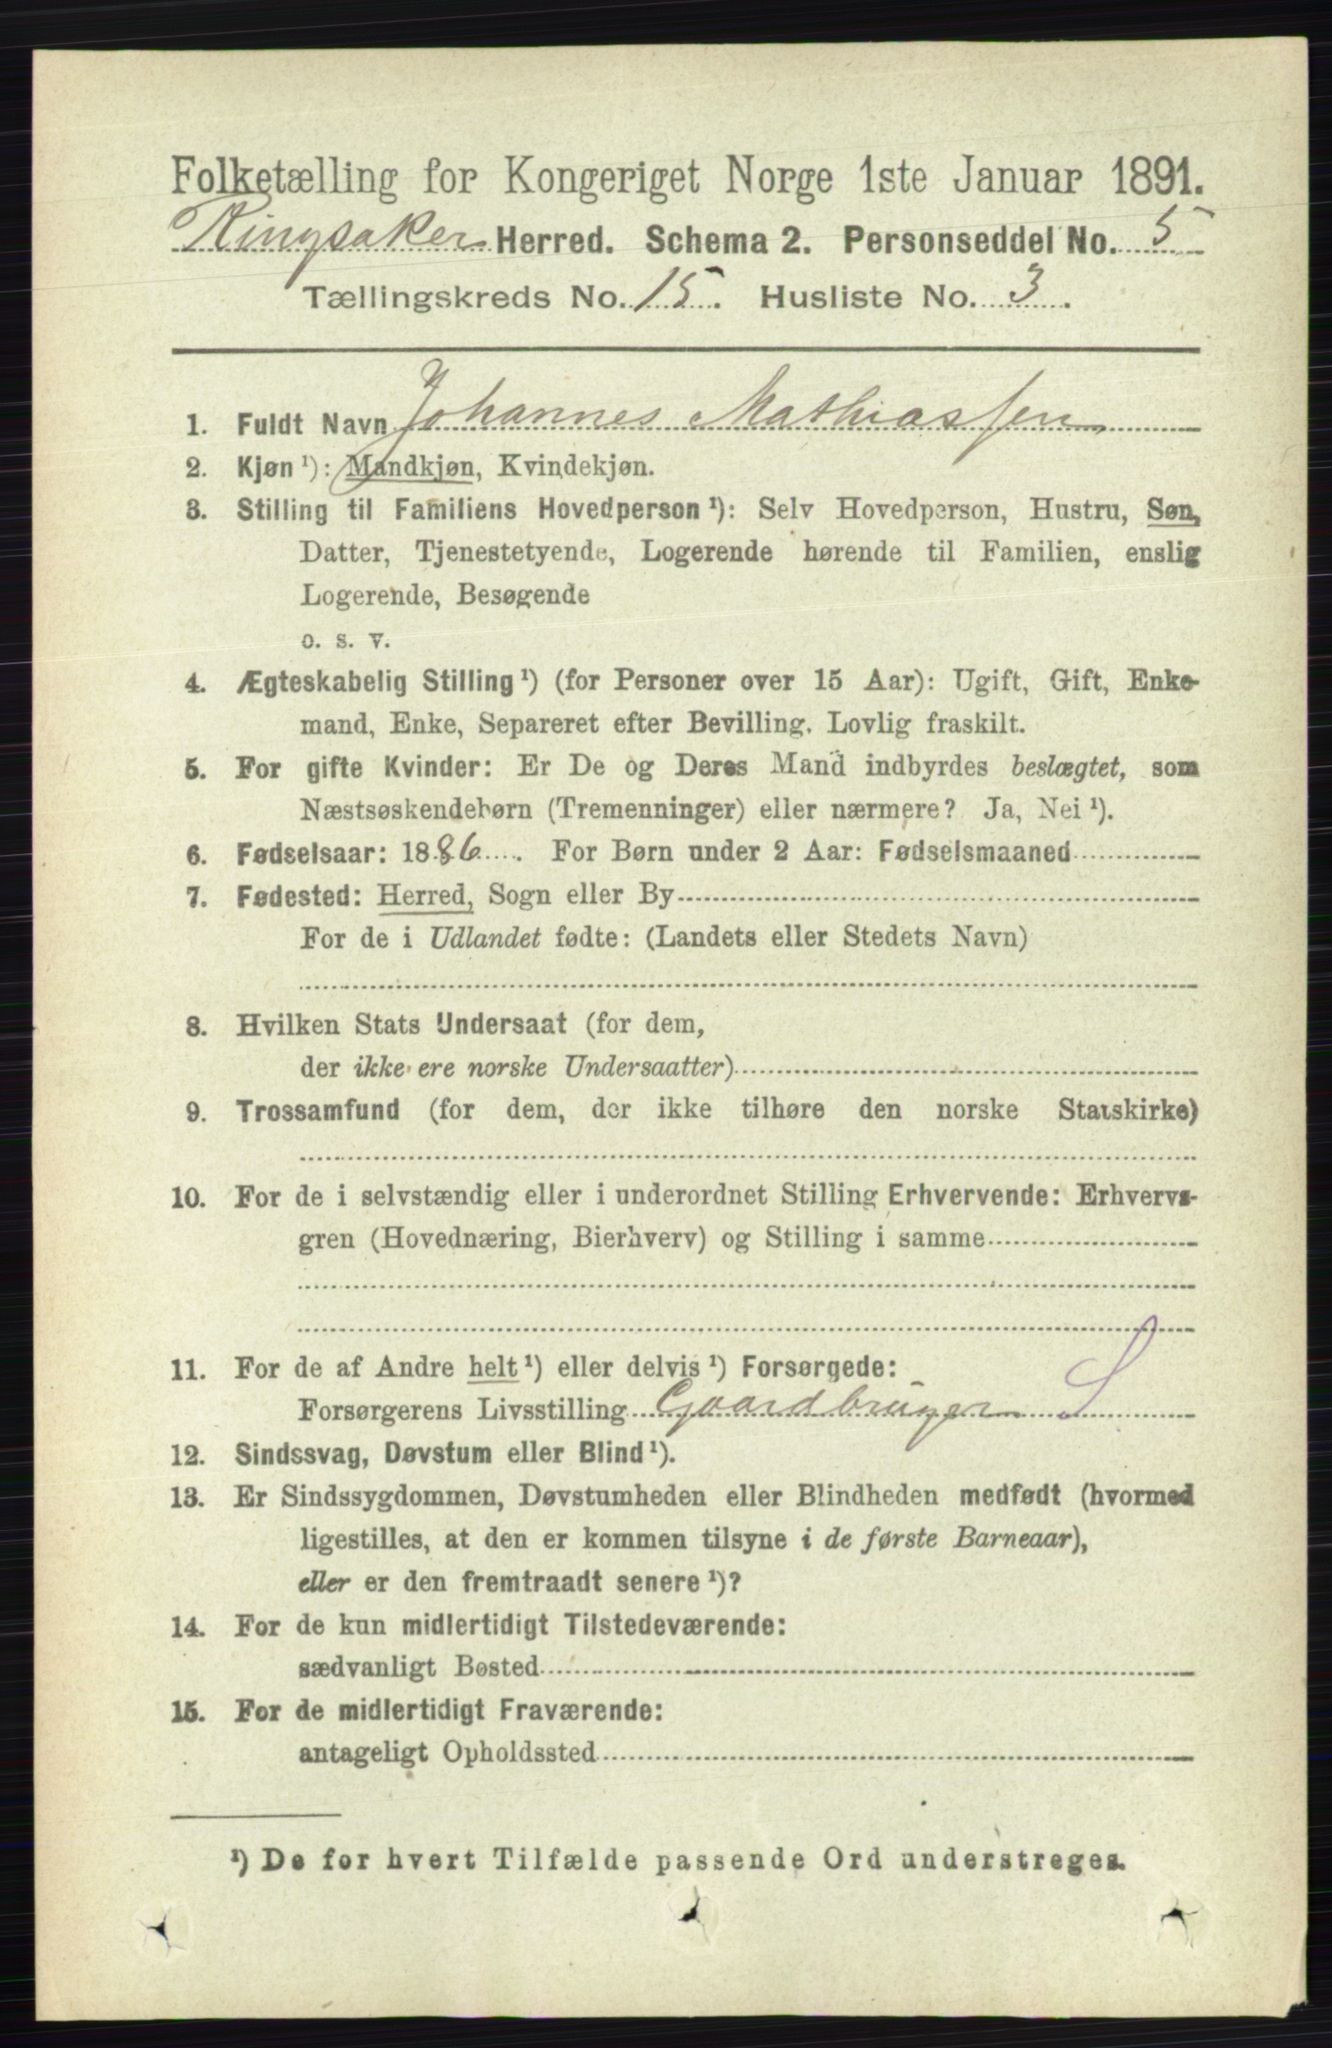 Folketælling for Kongeriget Norge 1ste Januar 1891.
Ringsaker Herred. Schema 2. Personseddel No. 5
Tællingskreds No. 15. Husliste No. 3.
1. Fuldt Navn Johannes Mathiassen
2. Kjøn ¹): Mandkjøn, Kvindekjøn.
3. Stilling til Familiens Hovedperson ¹): Selv Hovedperson, Hustru, Søn,
Datter, Tjenestetyende, Logerende hørende til Familien, enslig
Logerende, Besøgende
o. s. v.
4. Ægteskabelig Stilling ¹) (for Personer over 15 Aar): Ugift, Gift, Enke-
mand, Enke, Separeret efter Bevilling, Lovlig fraskilt.
5. For gifte Kvinder: Er De og Deres Mand indbyrdes beslægtet, som
Næstsøskendebørn (Tremenninger) eller nærmere? Ja, Nei ¹).
6. Fødselsaar: 1886. For Børn under 2 Aar: Fødselsmaaned
7. Fødested: Herred, Sogn eller By
For de i Udlandet fødte: (Landets eller Stedets Navn)
8. Hvilken Stats Undersaat (for dem,
der ikke ere norske Undersaatter)
9. Trossamfund (for dem, der ikke tilhøre den norske Statskirke)
10. For de i selvstændig eller i underordnet Stilling Erhvervende: Erhvervs-
gren (Hovednæring, Bierhverv) og Stilling i samme
11. For de af Andre helt ¹) eller delvis ¹) Forsørgede:
Forsørgerens Livsstilling Gaardbruger S
12. Sindssvag, Døvstum eller Blind ¹).
13. Er Sindssygdommen, Døvstumheden eller Blindheden medfødt (hvormed
ligestilles, at den er kommen tilsyne i de første Barneaar),
eller er den fremtraadt senere ¹)?
14. For de kun midlertidigt Tilstedeværende:
sædvanligt Bosted
15. For de midlertidigt Fraværende:
antageligt Opholdssted
¹) De for hvert Tilfælde passende Ord understreges.